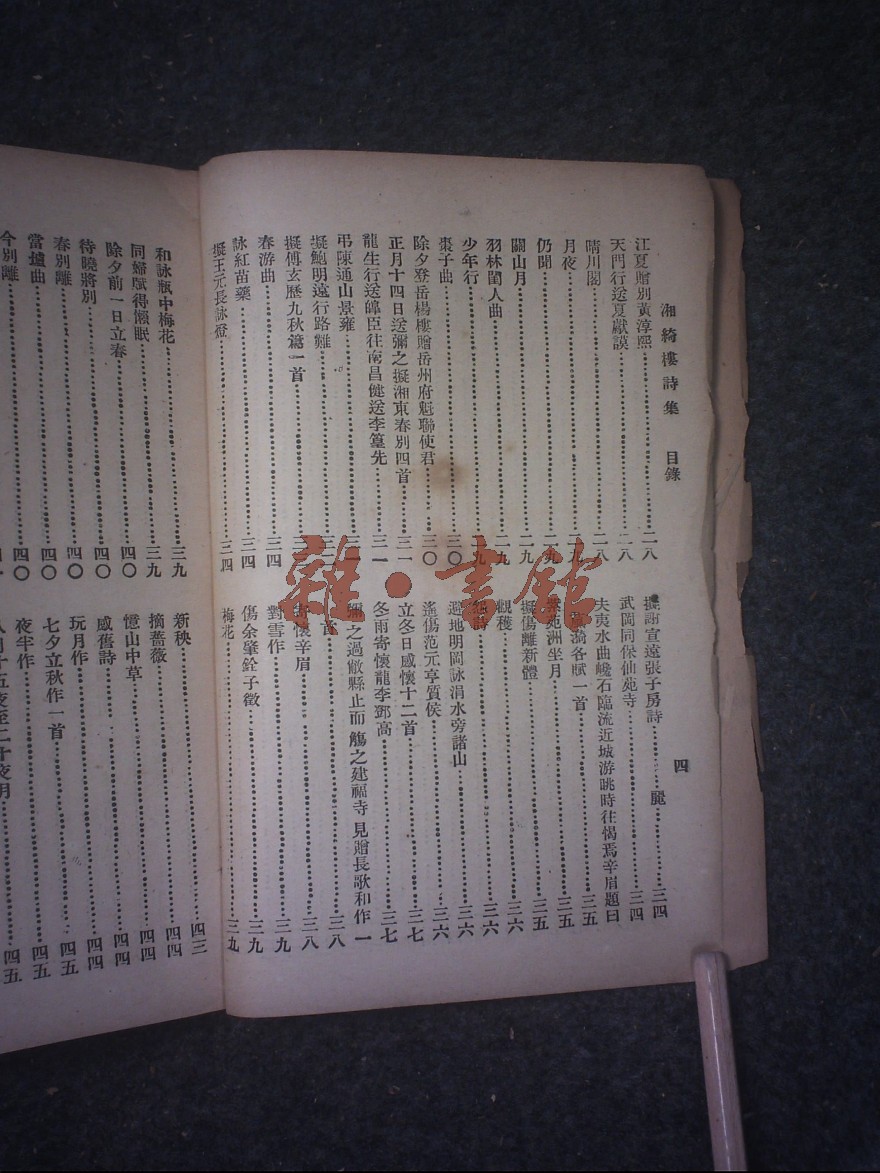 湘綺樓詩集　目錄
四
江夏贈別黃淳熙……二八
天門行送夏獻謨……二八
晴川閣……二八
月夜……二九
仍聞……二九
關山月……二九
羽林閨人曲……二九
少年行……二九
棗子曲……三〇
除夕登岳楊樓贈岳州府魁聯使君……三〇
正月十四日送彌之擬湘東春別四首……三一
龍生行送皞臣往南昌健送李篁先……三一
弔陳通山景雍……三一
擬鮑明遠行路難……三二
擬傅玄歷九秋篇一首……三
春游曲……三四
詠紅苗藥……三四
擬王元長詠燈……三四
擬謝宣遠張子房詩……三四
武岡同保仙苑寺……三四
夫夷水曲巉石臨流近城游眺時往愒焉辛眉題曰
麗
漪各賦一首……三五
苑洲坐月……三五
擬傷離新體……三五
觀穫……三六
詩……三六
避地明岡詠涓水旁諸山……三六
遙傷范元亨質侯……三六
立冬日感懷十二首……三七
冬雨寄懷龍李鄧高……三七
彌之過敝縣止而觴之建福寺見贈長歌和作一
首……三八
懷辛眉……三八
對雪作……三九
傷余肇銓子徵……三九
梅花……三九
和詠瓶中梅花……三九
同婦賦得懶眠……四〇
除夕前一日立春……四〇
待曉將別……四〇
春別離……四〇
當壚曲……四〇
今別離……四
新秧……四三
摘薔薇……四四
憶山中草……四四
感舊詩……四四
玩月作……四四
七夕立秋作一首……四五
夜半作……四五
八月十五夜至二十夜明……四五
雜·書館